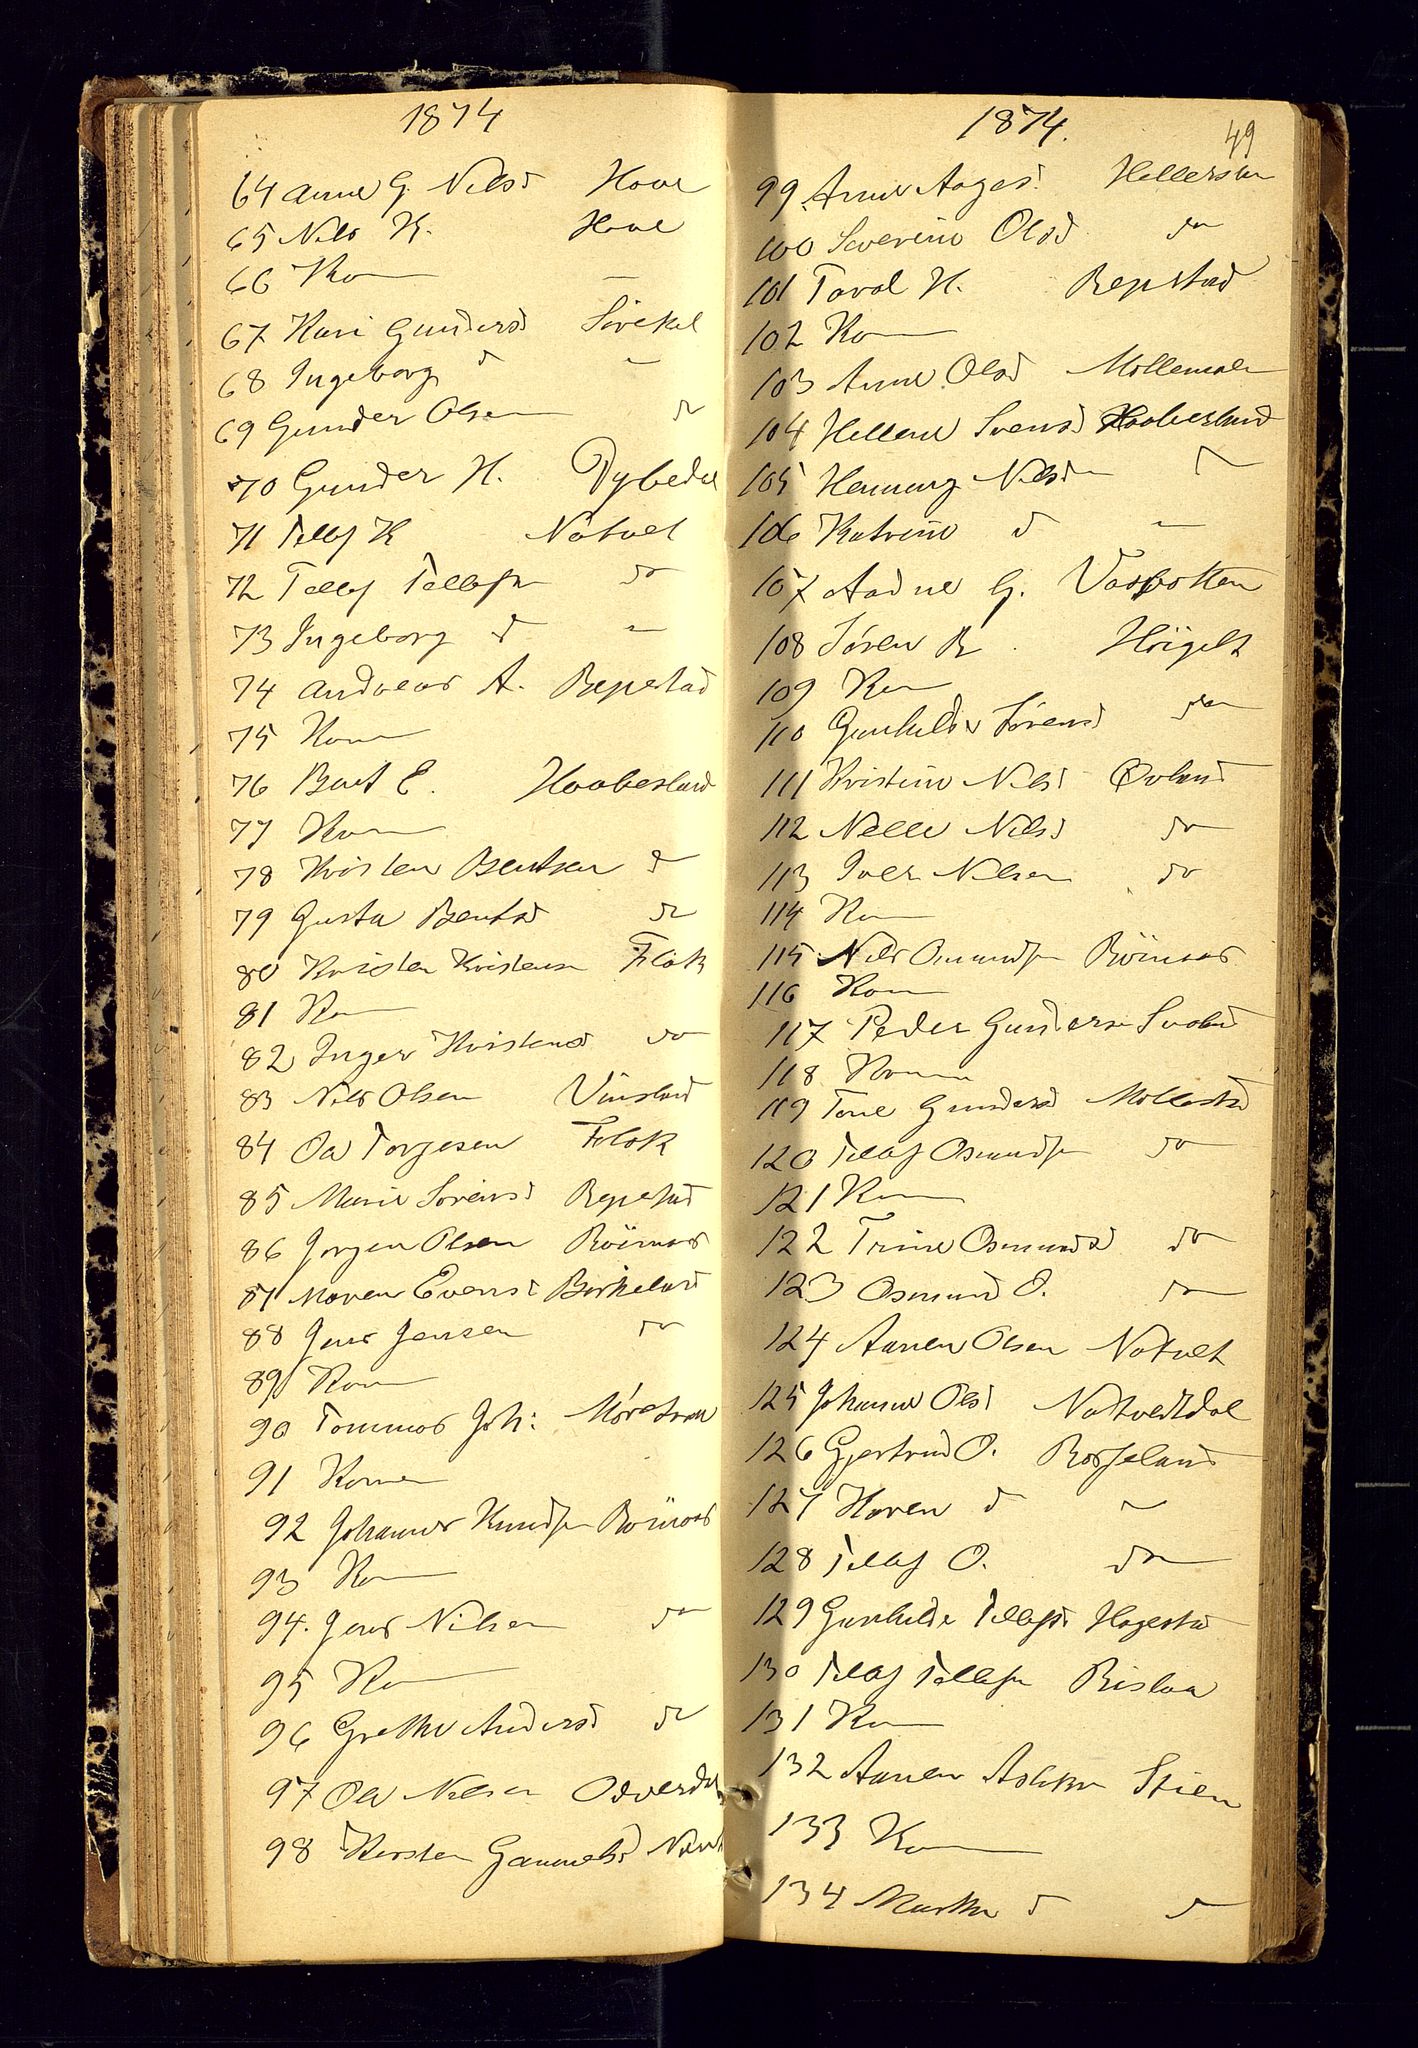 1874
64 Anne G. Nelsd Hove
65 Nils K. Hove
66 Kone —
67 Kari Gundersd Sirekel
68 Ingeborg d –
69 Gunder Olsen do
70 Gunder H. Dybedal
71 Tellef K Natvet
72 Tellef Tellefsn do
73 Ingeborg d –
74 Andreas A. Repstad
75 Kone
76 Bent E. Haabesland
77 Kone
78 Kristen Bentsen do
79 Gusta Bentsd do
80 Kristen Kristensn Flåk
81 Kone
82 Inger Kristensd do
83 Nils Olsen Vinsland
84 Ole Torgesen Flåk
85 Marie Sørensd Repstad
86 Jørgen Olsen Röinaas
87 Maren Evensd Birkeland
88 Jens Jensen do
89 Kone
90 Tommas Joh:
91 Kone
92 Johannes Knudsn Röinaas
93 Kone
94. Jens Nilsen do
95 Kone
96 Grethe Andersd do
97 Ole Nilsen Odderdal
98 Kirsten Gammelsd
1874.
49
99 Anne Aagesd.
100 Severine Olsd do
101 Taral H. Repstad
102 Kone
103 Anne Olsd
104 Hellene Svensd Haabesland
105 Henning Nelsen do
106 Katrine d –
107 Aadne G. Vasbotten
108 Søren B. Höigilt
109 Kone
110 Gunhilde Sørensd do
111 Kristine Nilsd Øvland
112 Nelle Nilsd do
113 Iver Nilsen do
114 Kone
115 Nils Osmundsn Röinaas
116 Kone
117 Peder Gundersn Svaland
118 Kone
119 Tone Gundersd Mollestad
120 Tellef Osmundsn do
121 Kone
122 Trine Osmundsd do
123 Osmund O. do
124 Aanen Olsen Natvet
125 Johanne Olsd Natvedtdal
126 Gjertrud O. Rosseland
127 Karen d –
128 Tellef O. do
129 Gunhilde Tellefsd Hagestad
130 Tellef Tellefsn Bislaa
131 Kone
132 Aanen Aslaksn Stien
133 Kone
134 Marthe d d